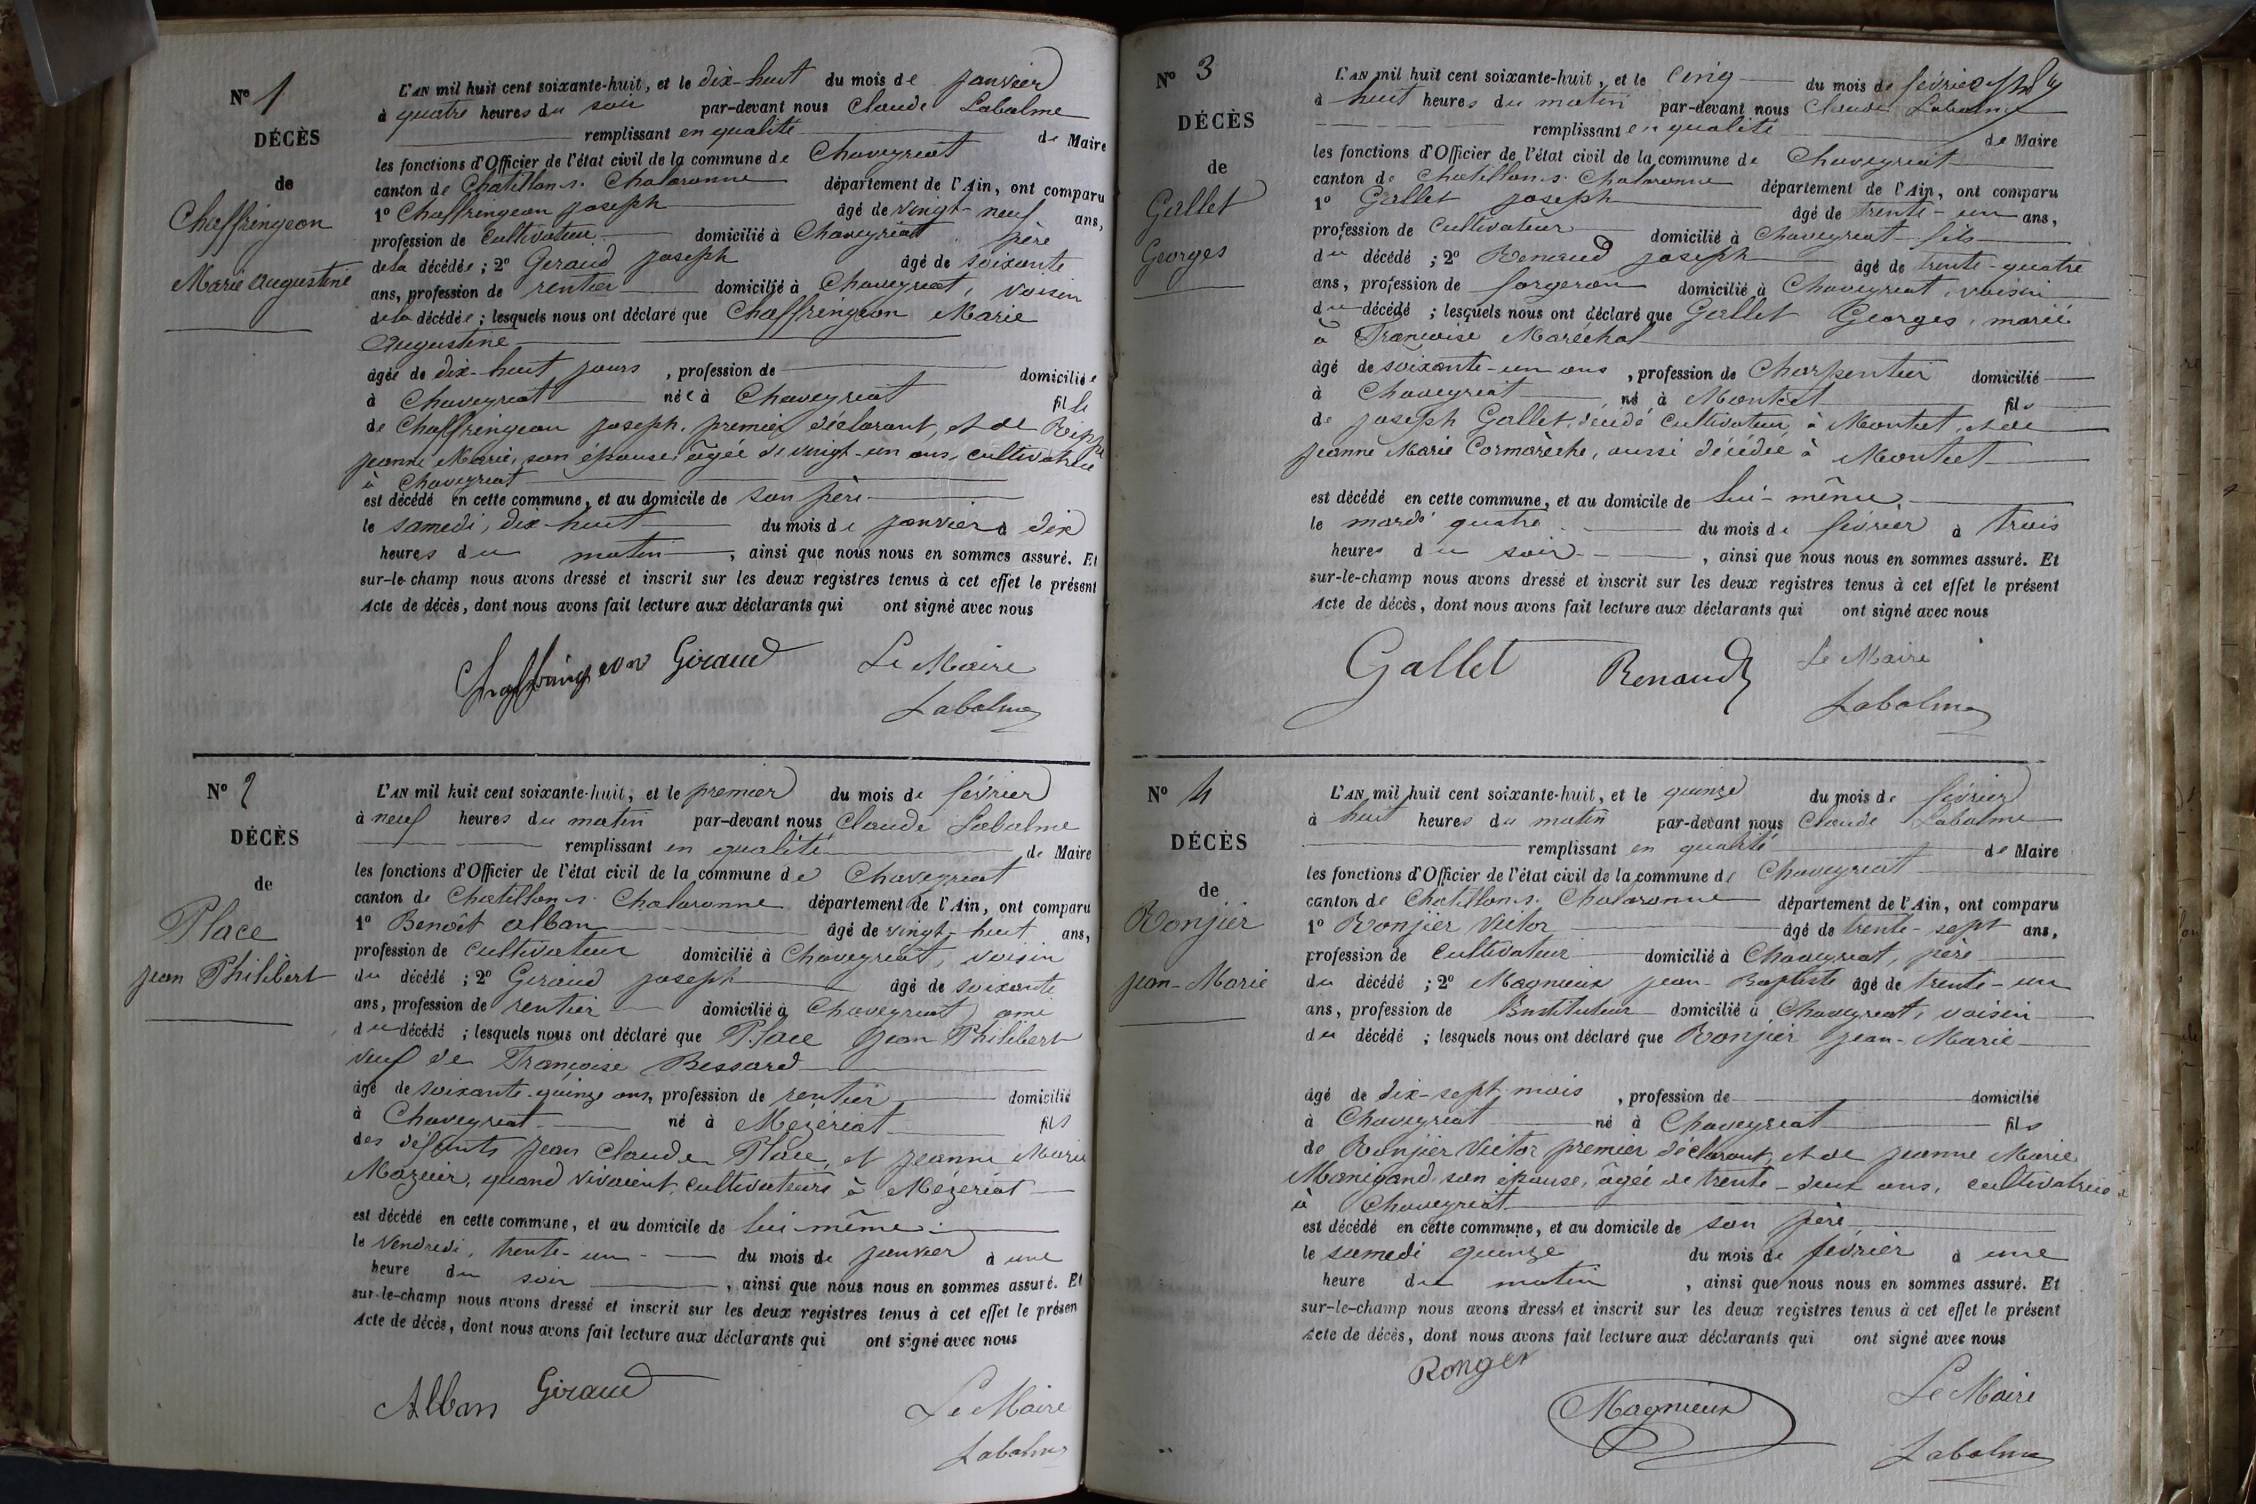 N° 1
DÉCÈS
de
Chaffringeon
Marie Augustine
L'AN mil huit cent soixante-huit, et le dix-huit du mois de janvier
à quatre heures du soir par-devant nous Claude Labalme
remplissant en qualité de Maire
les fonctions d'Officier de l'état civil de la commune de Chaveyriat
canton de Chatillon s. Chalaronne département de l'Ain, ont comparu
1° Chaffringeon Joseph âgé de vingt-neuf ans,
profession de cultivateur domicilié à Chaveyriat père
de la décédée ; 2° Geraud Joseph âgé de soixante
ans, profession de rentier domicilié à Chaveyriat, voisin
de la décédée ; lesquels nous ont déclaré que Chaffringeon Marie
Augustine
âgée de dix-huit jours , profession de domiciliée
à Chaveyriat née à Chaveyriat fille
de Chaffringeon Joseph, premier déclarant, et de
Jeanne Marie, son épouse, âgée de vingt-un ans, cultivatrice
à Chaveyriat
est décédé en cette commune, et au domicile de son père
le samedi, dix-huit du mois de janvier à dix
heures du matin , ainsi que nous nous en sommes assuré. Et
sur-le-champ nous avons dressé et inscrit sur les deux registres tenus à cet effet le présent
Acte de décès, dont nous avons fait lecture aux déclarants qui ont signé avec nous
Chaffringeon Giraud Le Maire
Labalme
N° 2
DÉCÈS
de
Place
Jean Philibert
L'AN mil huit cent soixante-huit, et le premier du mois de février
à neuf heures du matin par-devant nous Claude Labalme
remplissant en qualité de Maire
les fonctions d'Officier de l'état civil de la commune de Chaveyriat
canton de Chatillon s. Chalaronne département de l'Ain, ont comparu
1° Benoît Alban âgé de vingt-huit ans,
profession de cultivateur domicilié à Chaveyriat, voisin
du décédé ; 2° Geraud Joseph âgé de soixante
ans, profession de rentier domicilié à Chaveyriat ami
du décédé ; lesquels nous ont déclaré que Place Jean Philibert
veuf de Françoise Bessard
âgé de soixante-quinze ans, profession de rentier domicilié
à Chaveyriat né à Mézériat fils
des défunts Jean Claude Place, et Jeanne Marie
Mazuir, quand vivaient, cultivateurs à Mézériat
est décédé en cette commune, et au domicile de lui-même
le vendredi, trente-un du mois de janvier à une
heure du soir , ainsi que nous nous en sommes assuré. Et
sur-le-champ nous avons dressé et inscrit sur les deux registres tenus à cet effet le présent
Acte de décès, dont nous avons fait lecture aux déclarants qui ont signé avec nous
Alban Giraud Le Maire
Labalme
N° 3
DÉCÈS
de
Gallet
Georges
L'AN mil huit cent soixante-huit, et le cinq du mois de février
à huit heures du matin par-devant nous Claude Labalme
remplissant en qualité de Maire
les fonctions d'Officier de l'état civil de la commune de Chaveyriat
canton de Chatillon s. Chalaronne département de l'Ain, ont comparu
1° Gallet Joseph âgé de trente-un ans,
profession de cultivateur domicilié à Chaveyriat fils
du décédé ; 2° Renaud Joseph âgé de trente-quatre
ans, profession de forgeron domicilié à Chaveyriat, voisin
du décédé ; lesquels nous ont déclaré que Gallet Georges, marié
à Françoise Maréchal
âgé de soixante-un ans , profession de Charpentier domicilié
à Chaveyriat né à Montcet fils
de Joseph Gallet, décédé cultivateur à Montcet, et de
Jeanne Marie Cormorèche, aussi décédée à Montcet
est décédé en cette commune, et au domicile de lui-même
le mardi quatre du mois de février à trois
heures du soir , ainsi que nous nous en sommes assuré. Et
sur-le-champ nous avons dressé et inscrit sur les deux registres tenus à cet effet le présent
Acte de décès, dont nous avons fait lecture aux déclarants qui ont signé avec nous
Gallet Renaud Le Maire
Labalme
N° 4
DÉCÈS
de
Ronjier
Jean-Marie
L'AN mil huit cent soixante-huit, et le quinze du mois de février
à huit heures du matin par-devant nous Claude Labalme
remplissant en qualité de Maire
les fonctions d'Officier de l'état civil de la commune de Chaveyriat
canton de Chatillon s. Chalaronne département de l'Ain, ont comparu
1° Ronjier Victor âgé de trente-sept ans,
profession de cultivateur domicilié à Chaveyriat, père
du décédé ; 2° Magnieux Jean-Baptiste âgé de trente-un
ans, profession de Instituteur domicilié à Chaveyriat, voisin
du décédé ; lesquels nous ont déclaré que Ronjier Jean-Marie
âgé de dix-sept mois , profession de domicilié
à Chaveyriat né à Chaveyriat fils
de Ronjier Victor premier déclarant, et de Jeanne Marie
Manigand, son épouse, âgée de trente-deux ans, cultivatrice
à Chaveyriat
est décédé en cette commune, et au domicile de son père
le samedi quinze du mois de février à une
heure du matin , ainsi que nous nous en sommes assuré. Et
sur-le-champ nous avons dressé et inscrit sur les deux registres tenus à cet effet le présent
Acte de décès, dont nous avons fait lecture aux déclarants qui ont signé avec nous
Ronger Le Maire
Magnieux
Labalme